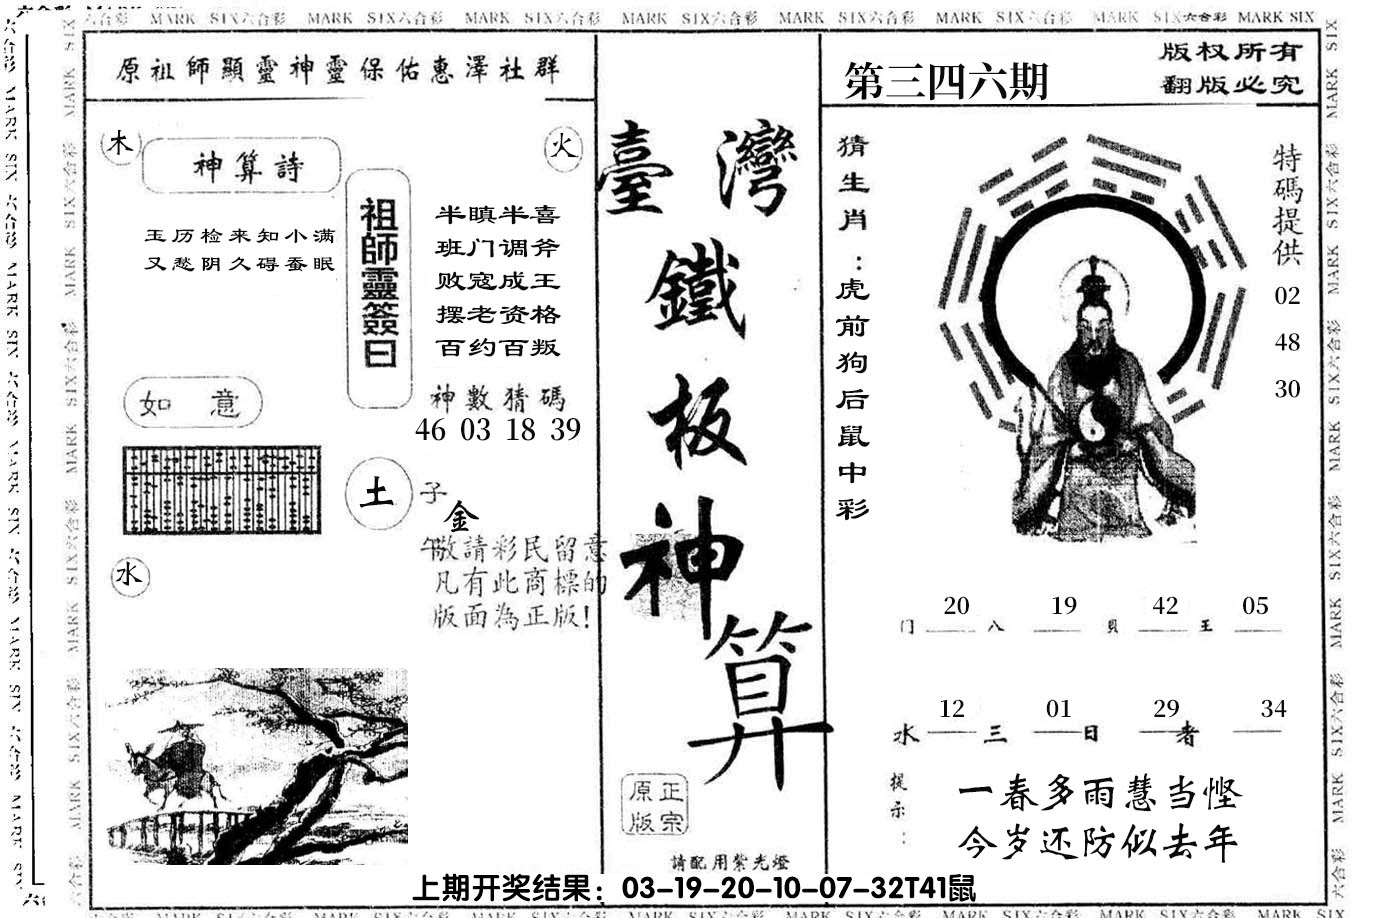 MARK SIX六合彩 MARK SIX六合彩 MARK SIX六合彩 MARK SIX六合彩 MARK SIX六合彩 MARK SIX六合彩 MARK SIX六合彩 MARK SIX
原祖師顯靈神靈保佑惠澤社群
木
神算詩
火
玉历检来知小满
又愁阴久碍蚕眠
祖師靈簽曰
半瞋半喜
班门调斧
败寇成王
摆老资格
百约百叛
神數猜碼
46 03 18 39
如 意
土
子
金
午
敬請彩民留意
凡有此商標的
版面為正版!
水
臺灣
鐵
板
神
算
正宗
原版
請配用紫光燈
第三四六期
版权所有
翻版必究
猜生肖:虎前狗后鼠中彩
特碼提供
02
48
30
20 19 42 05
门 八 貝 王
12 01 29 34
水 三 日 者
提示:
一春多雨慧当悭
今岁还防似去年
上期开奖结果：03-19-20-10-07-32T41鼠